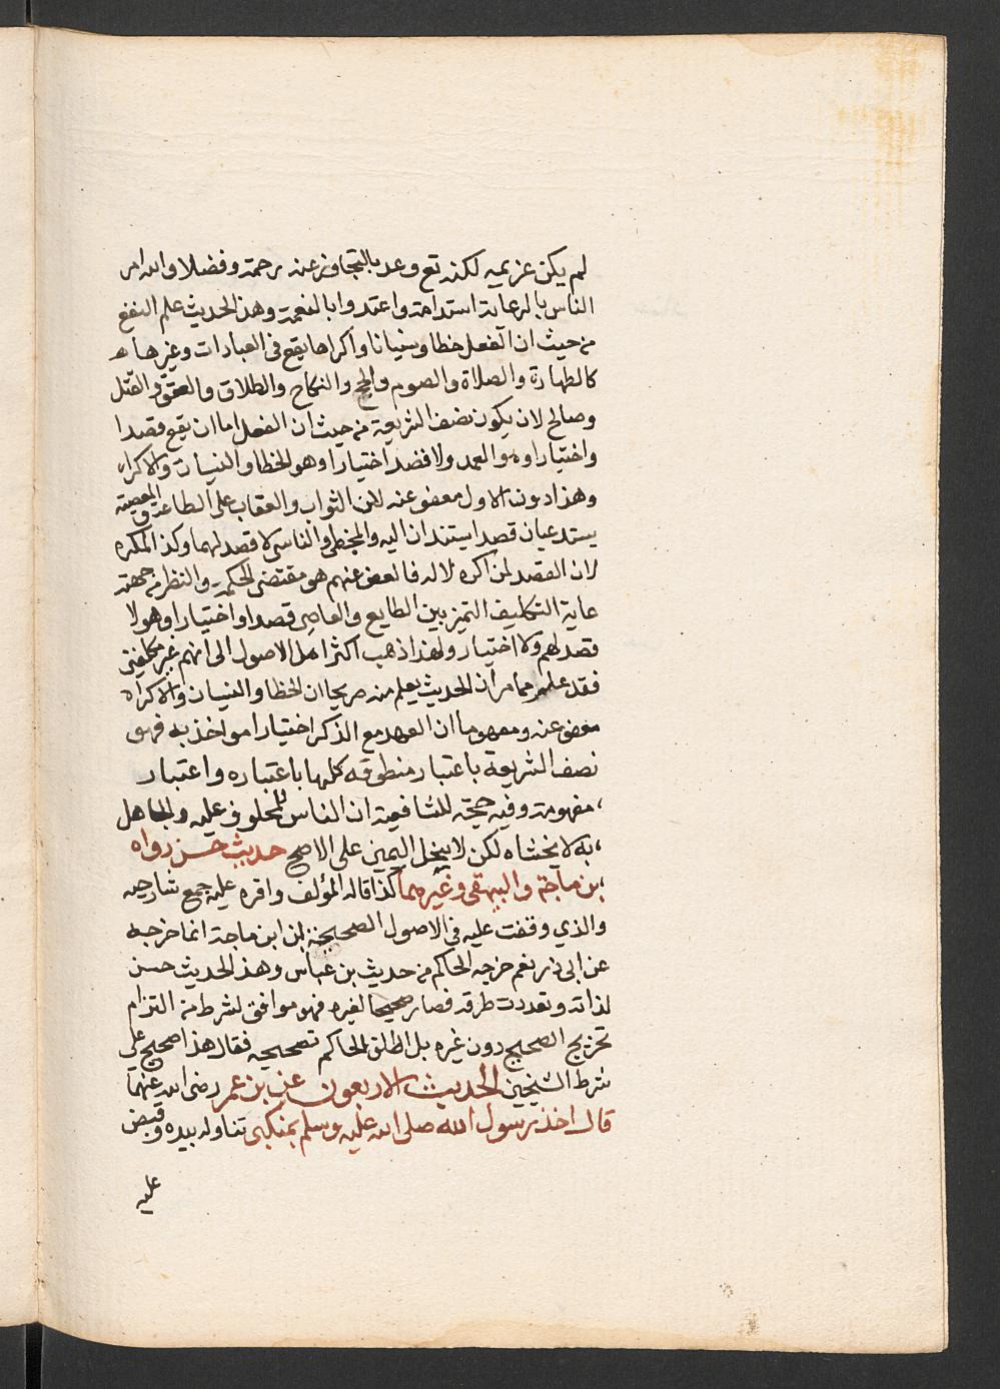 لم يكن عزيمه لكنه تع وعد بالتجاوز عنه رحمة وفضلا والله امر
الناس بالرعاية استدامة واعتدوا بالنعمة وهذا الحديث علم النفع
من حيث ان الفعل خطا ونسيانا واكراها يقع في العبادات وغيرها
كالطهارة والصلاة والصوم والحج والنكاح والطلاق والعتق والقتل
وصالح لان يكون نصف الشريعة من حيث ان الفعل اما ان يقع قصدا
واختيارا وهو العمد ولا قصد اختيارا وهو الخطا والنسيان والاكراه
وهذا دون الاول معفو عنه لان الثواب والعقاب على الطاعة والمعصية
يستدعيان قصدا يستندان اليه والمخطي والناسي لا قصد لهما وكذا المكره
لان القصد لمن اكره لا له فالعفو عنهم هو مقتضى الحكمة والنظر من جهة
غاية التكليف التميز بين الطايع والعاصي قصدا واختيارا وهولا
قصد لهم ولا اختيار ولهذا ذهب اكثر اهل الاصول الى انهم غير مكلفين
فقد علم مما مر ان الحديث يعلم منه صريحا ان الخطا والنسيان والاكراه
معفو عنه ومفهوما ان العهد مع الذكر اختيارا مواخذ به فهو
نصف الشريعة باعتبار منطوقه كلها باعتباره واعتبار
مفهومه وفيه حجة للشافعية ان الناس للمحلوف عليه والجاهل
به لا يحنثاه لكن لا ينحل اليمين على الاصح حديث حسن رواه
ابن ماجة والبيهقي وغيرهما كذا قاله المؤلف واقره عليه جمع شارحيه
والذي وقفت عليه في الاصول الصحيحة لمن ابن ماجة انما خرجه
عن ابي ذر نعم خرجه الحاكم من حديث بن عباس وهذا الحديث حسن
لذاته وتعددت طرقه فصار صحيحا لغيره فهو موافق لشرطه من التزام
تخريج الصحيح دون غيره بل اطلق الحاكم تصحيحه فقال هذا صحيح على
شرط الشيخين الحديث الاربعون عن بن عمر رضي الله عنهما
قال اخذ رسول الله صلى الله عليه وسلم بمنكبي تناوله بيده وقبض
عليه